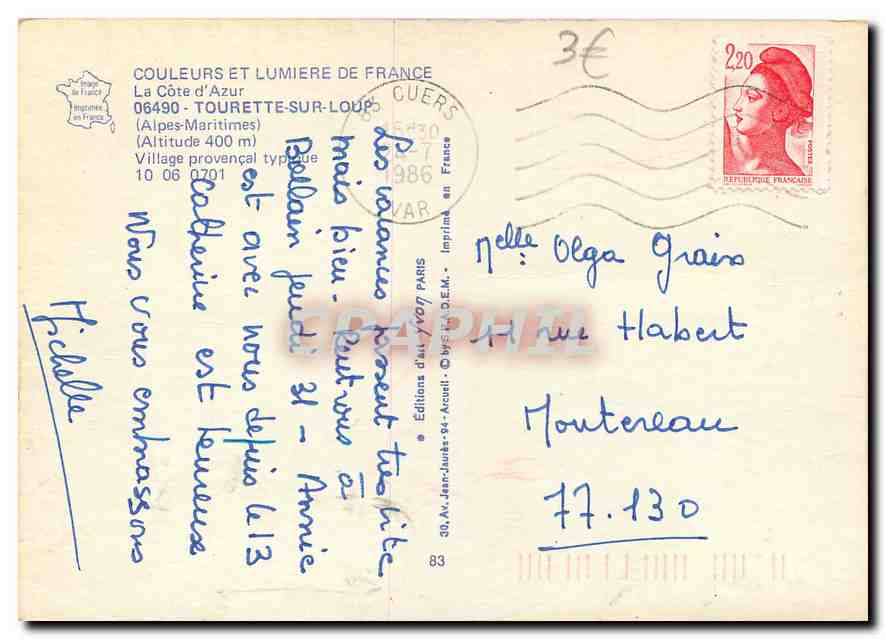 Image
de France
Imprimée
en France
COULEURS ET LUMIERE DE FRANCE
La Côte d'Azur
06490 - TOURETTE-SUR-LOUP
(Alpes-Maritimes)
(Altitude 400 m)
Village provençal typique
10 06 0701
Les vacances passent très vite
mais bien - Rentrons à
jeudi 31 - Annie
est avec nous depuis le 13
Catherine est heureuse
Nous vous embrassons
Michelle
30, Av. Jean-Jaurès-94-Arcueil - © by S.P.A.D.E.M. - Imprimé en France
Éditions d'art yvon PARIS
83
83 CUERS
15H30
-7
1986
VAR
3€
2,20
POSTES
REPUBLIQUE FRANÇAISE
Melle Olga
11 rue Habert
Montereau
77.130
CPAPHIL